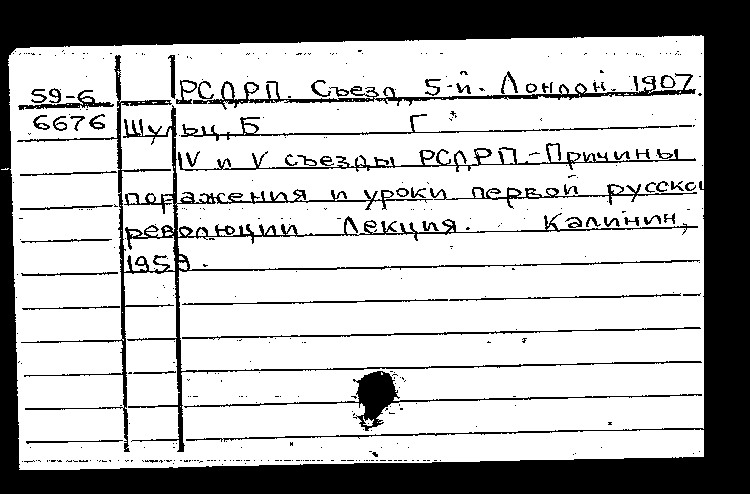 59-6 РСДРП. Съезд, 5-й. Лондон. 1907.
6676 Шульц, Б Г
IV и V съезды РСДРП.-Причины
поражения и уроки первой русско
революции. Лекция. Калинин,
1959.